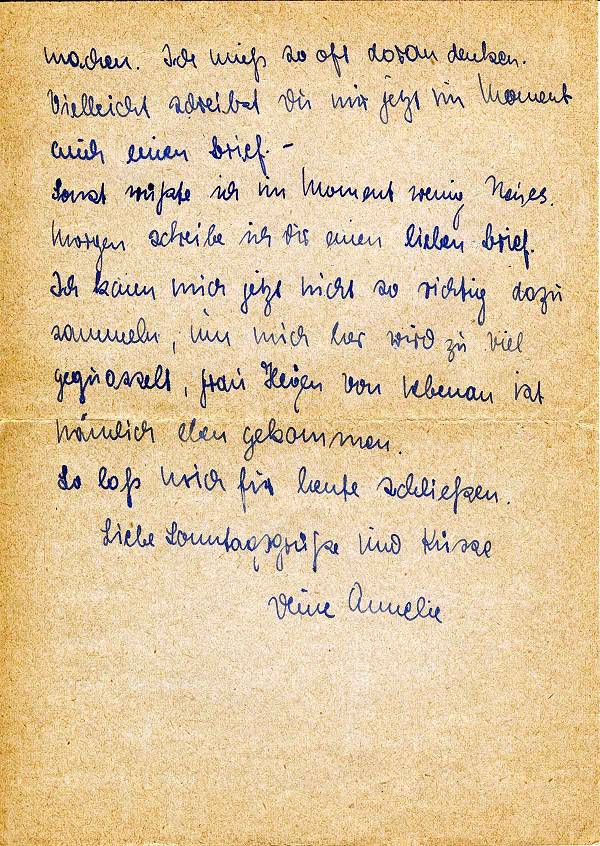 machen. Ich muß so oft daran denken.
Vielleicht schreibst Du mir jetzt im Moment
auch einen Brief. –
Sonst wüßte ich im Moment wenig Neues.
Morgen schreibe ich Dir einen lieben Brief.
Ich kann mich jetzt nicht so richtig dazu
sammeln, um mich her wird zu viel
gequasselt, Frau von nebenan ist
nämlich eben gekommen.
So laß mich für heute schließen.
Liebe Sonntagsgrüße und Küsse
Deine Annelie